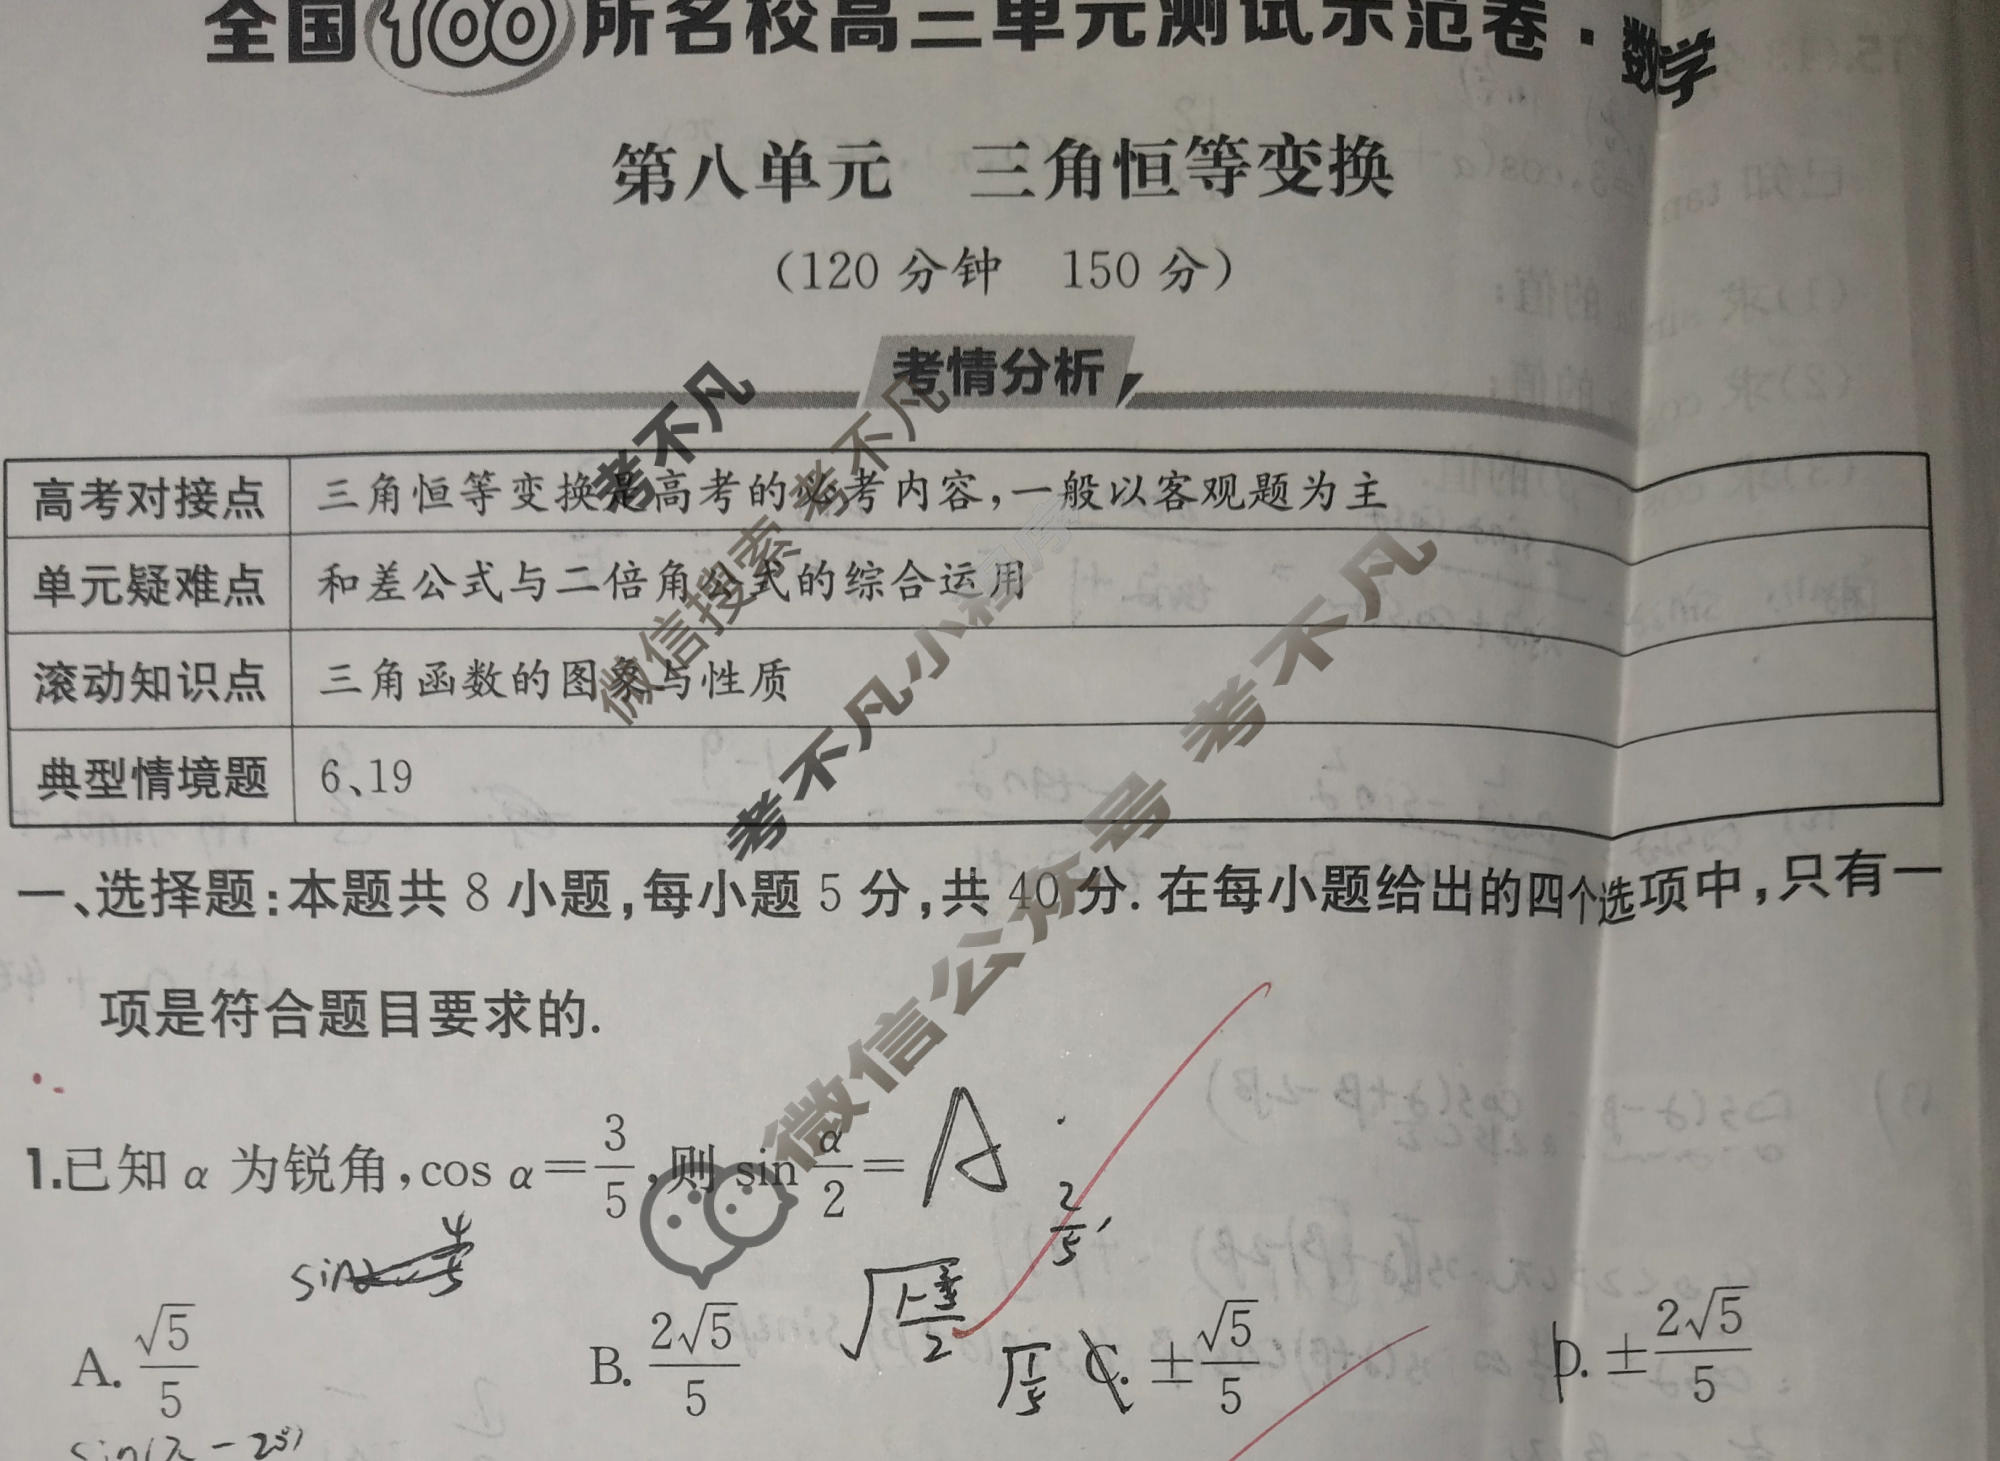 全国100所名校高三单元测试示范卷·数学
第八单元 三角恒等变换
（120分钟 150分）
考情分析
高考对接点 三角恒等变换是高考的必考内容，一般以客观题为主
单元疑难点 和差公式与二倍角公式的综合运用
滚动知识点 三角函数的图象与性质
典型情境题 6、19
一、选择题：本题共8小题，每小题5分，共40分．在每小题给出的四个选项中，只有一
项是符合题目要求的．
1.已知α为锐角，cos α=3/5，则 sin α/2= A
2/5
√((1-3/5)/2)
√(1/5)
A. √5/5 B. 2√5/5 C. ±√5/5 D. ±2√5/5
考不凡
微信搜索 考不凡
考不凡小程序
微信公众号 考不凡